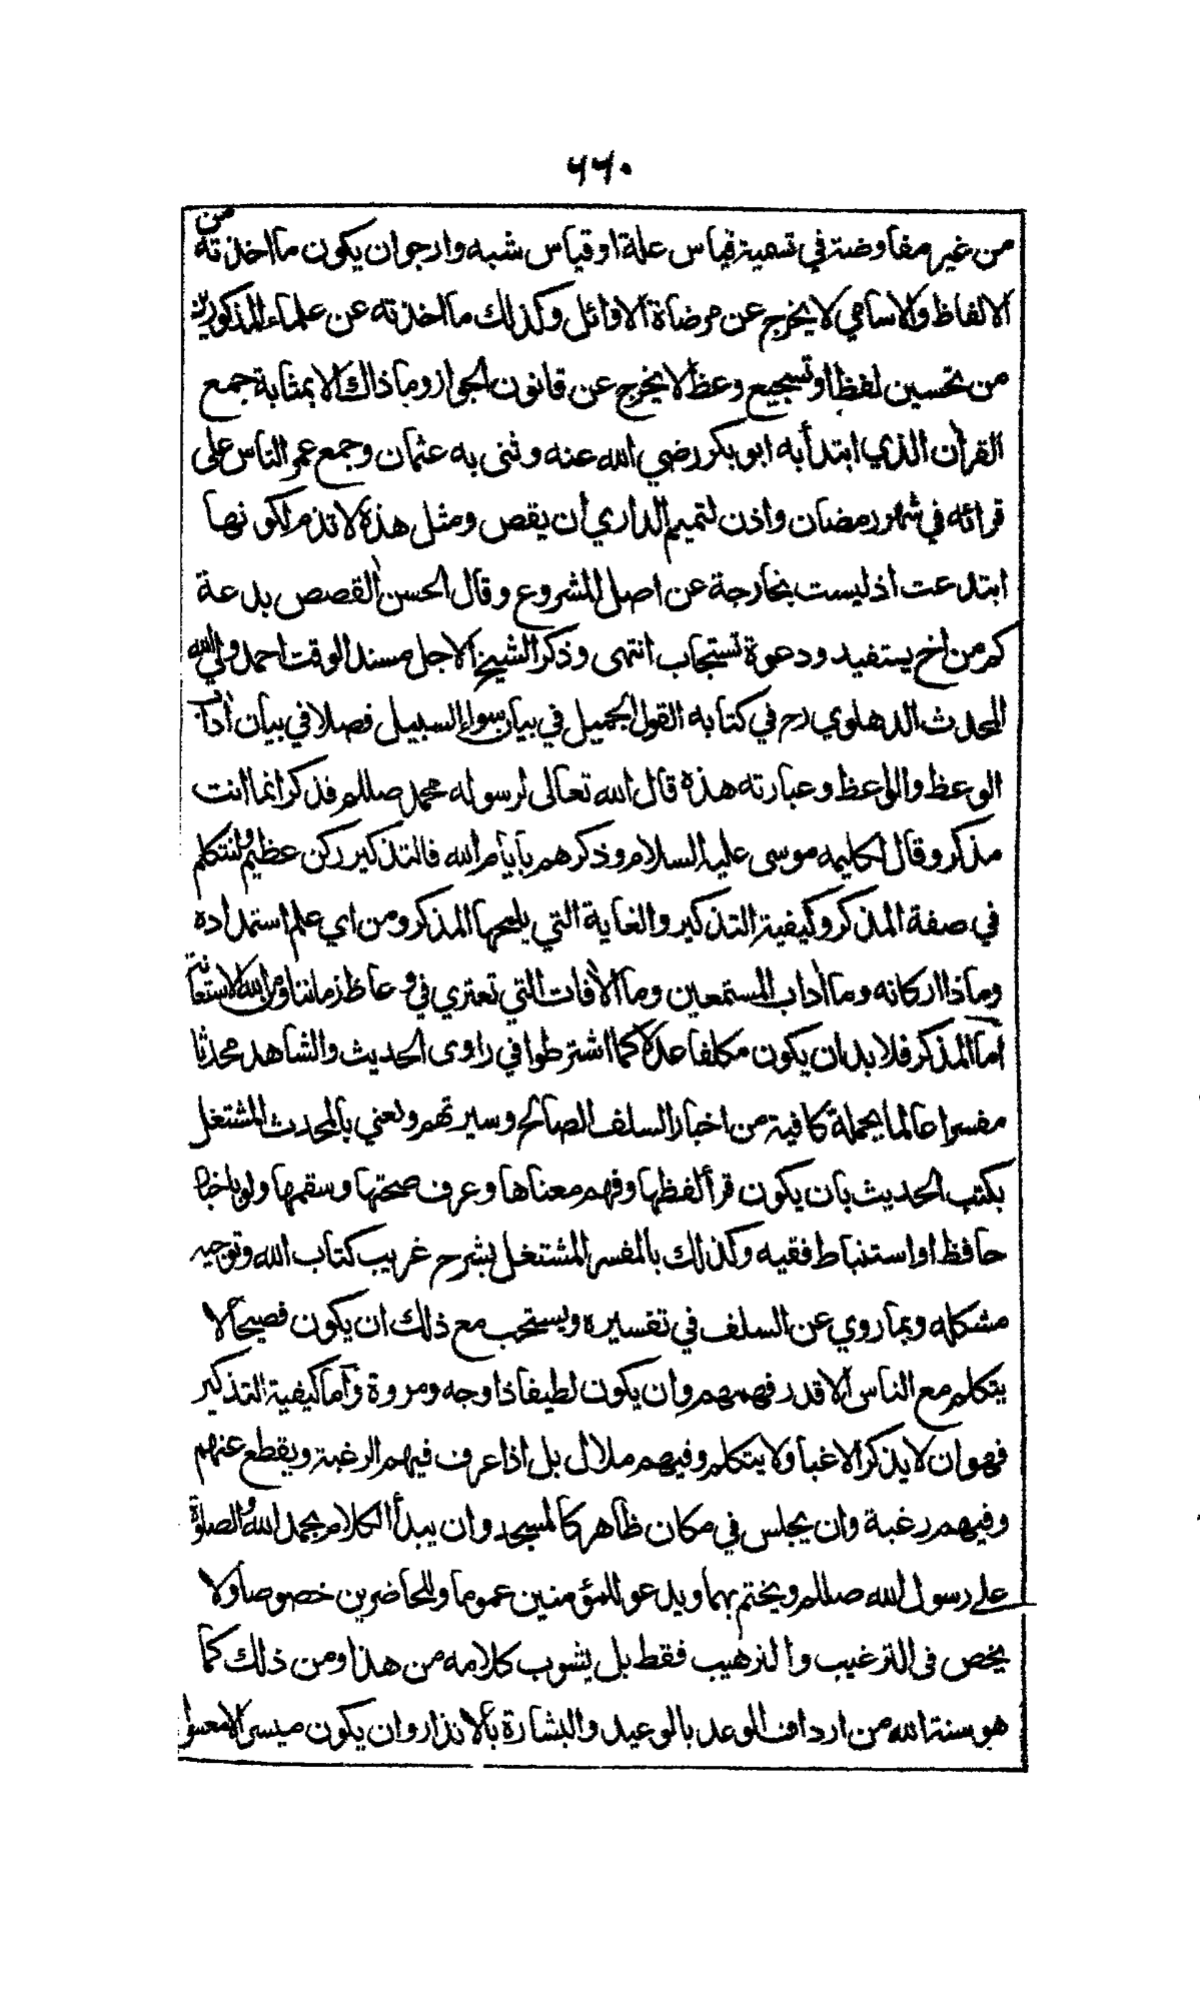 ٦٦٠
من غير مفاوضة في تسمية قياس علة او قياس شبه وارجوان يكون ما اخذته من
الالفاظ والأسامي لا يخرج عن مرضاة الاوائل وكذلك ما اخذته عن علماء المذكورين
من تحسين لفظ او تسجيع وعظ لا يخرج عن قانون الجواز وما ذاك الا بمثابة جمع
القرأن الذي ابتدأ به ابو بكر رضي الله عنه وثنى به عثمان وجمع عمر الناس على
قرائه في شهر رمضان واذن لتميم الداري أن يقص ومثل هذه لا تذم لكونها
ابتدعت أذ ليست بخارجة عن اصل المشروع وقال الحسن القصص بدعة
كم من اخ يستفيد ودعوة تستجاب انتهى وذكر الشيخ الاجل مسند الوقت احمد ولي الله
المحدث الدهلوي رح في كتابه القول الجميل في بيان سواء السبيل فصلا في بيان أداب
الوعظ والواعظ وعبارته هذه قال الله تعالى لرسوله محمد صللم فذكر انما انت
مذكر وقال لكليمه موسى عليه السلام وذكرهم بأيام الله فالتذكير ركن عظيم ولنتكلم
في صفة المذكر وكيفية التذكير والغاية التي يلمحها المذكر ومن اي علم استمداده
وماذا اركانه وما أداب المستمعين وما الأفات التي تعتري في وعاظ زماننا ومن الله الاستعانة
أما المذكر فلا بد ان يكون مكلفا عدلا كما اشترطوا في راوى الحديث والشاهد محدثا
مفسرا عالما بجملة كافية من اخبار السلف الصالح وسيرتهم ونعني بالمحدث المشتغل
بكتب الحديث بان يكون قرأ لفظها وفهم معناها وعرف صحتها وسقمها ولو باخبار
حافظ او استنباط فقيه وكذلك بالمفسر المشتغل بشرح غريب كتاب الله وتوجيه
مشكله وبما روي عن السلف في تفسيره ويستحب مع ذلك ان يكون فصيحا لا
يتكلم مع الناس الا قدر فهمهم وان يكون لطيفا ذا وجه ومروة وأما كيفية التذكير
فهو ان لا يذكر الا غبا ولا يتكلم وفيهم ملال بل اذا عرف فيهم الرغبة ويقطع عنهم
وفيهم رغبة وان يجلس في مكان ظاهر كالمسجد وان يبدأ الكلام بحمد الله والصلوة
على رسول الله صللم ويختم بهما ويدعو للمؤمنين عموما وللحاضرين خصوصا ولا
يخص فى الترغيب والترهيب فقط بل يشوب كلامه من هذا ومن ذلك كما
هو سنة الله من ارداف الوعد بالوعيد والبشارة بالانذار وان يكون ميسرا لا معسرا